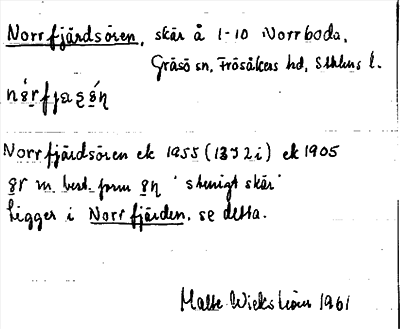 Norrfjärdsören, skär å 1-10 Norrboda,
Gräsö sn, Frösåkers hd, Sthlms l.
Norrfjärdsören ek 1955 (13J2i) ek 1905
best. form "stenigt skär"
Ligger i Norrfjärden, se detta.
Malte Wickström 1961